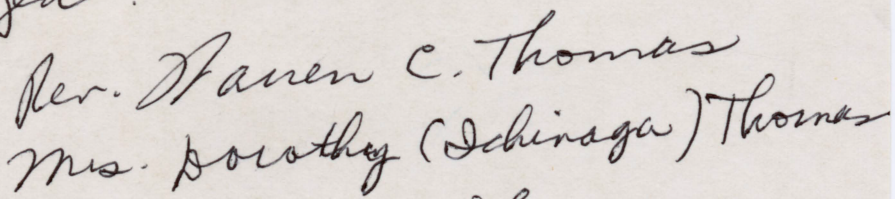 Rev. Warren C. Thomas
Mrs. Dorothy (Ichinaga) Thomas